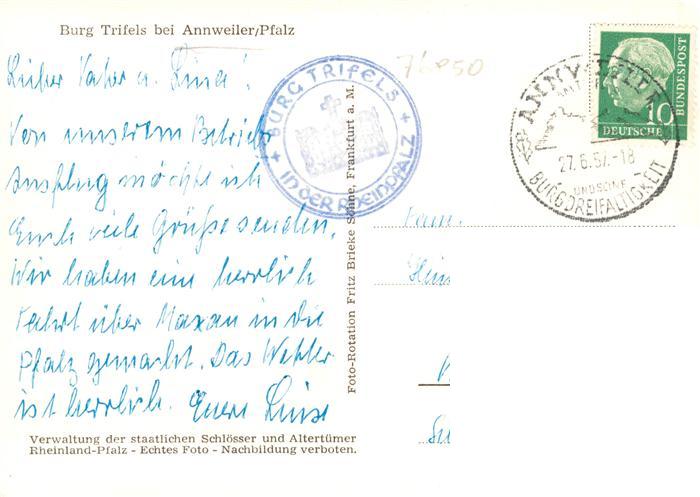 Burg Trifels bei Annweiler/Pfalz
Lieber Vater u. Lina!
Von unserem Betriebs
Ausflug möchte ich
Euch viele Grüße senden.
Wir haben eine herrlich
Fahrt über Maxau in die
Pfalz gemacht. Das Wetter
ist herrlich. Eure Luise
Verwaltung der staatlichen Schlösser und Altertümer
Rheinland-Pfalz - Echtes Foto - Nachbildung verboten.
Foto-Rotation Fritz Brieke Söhne, Frankfurt a. M.
BURG TRIFELS
IN DER RHEINPFALZ
76850
27.6.57.-18
UND SEINE
BURGDREIFALTIGKEIT
10
DEUTSCHE
BUNDESPOST
Fam.